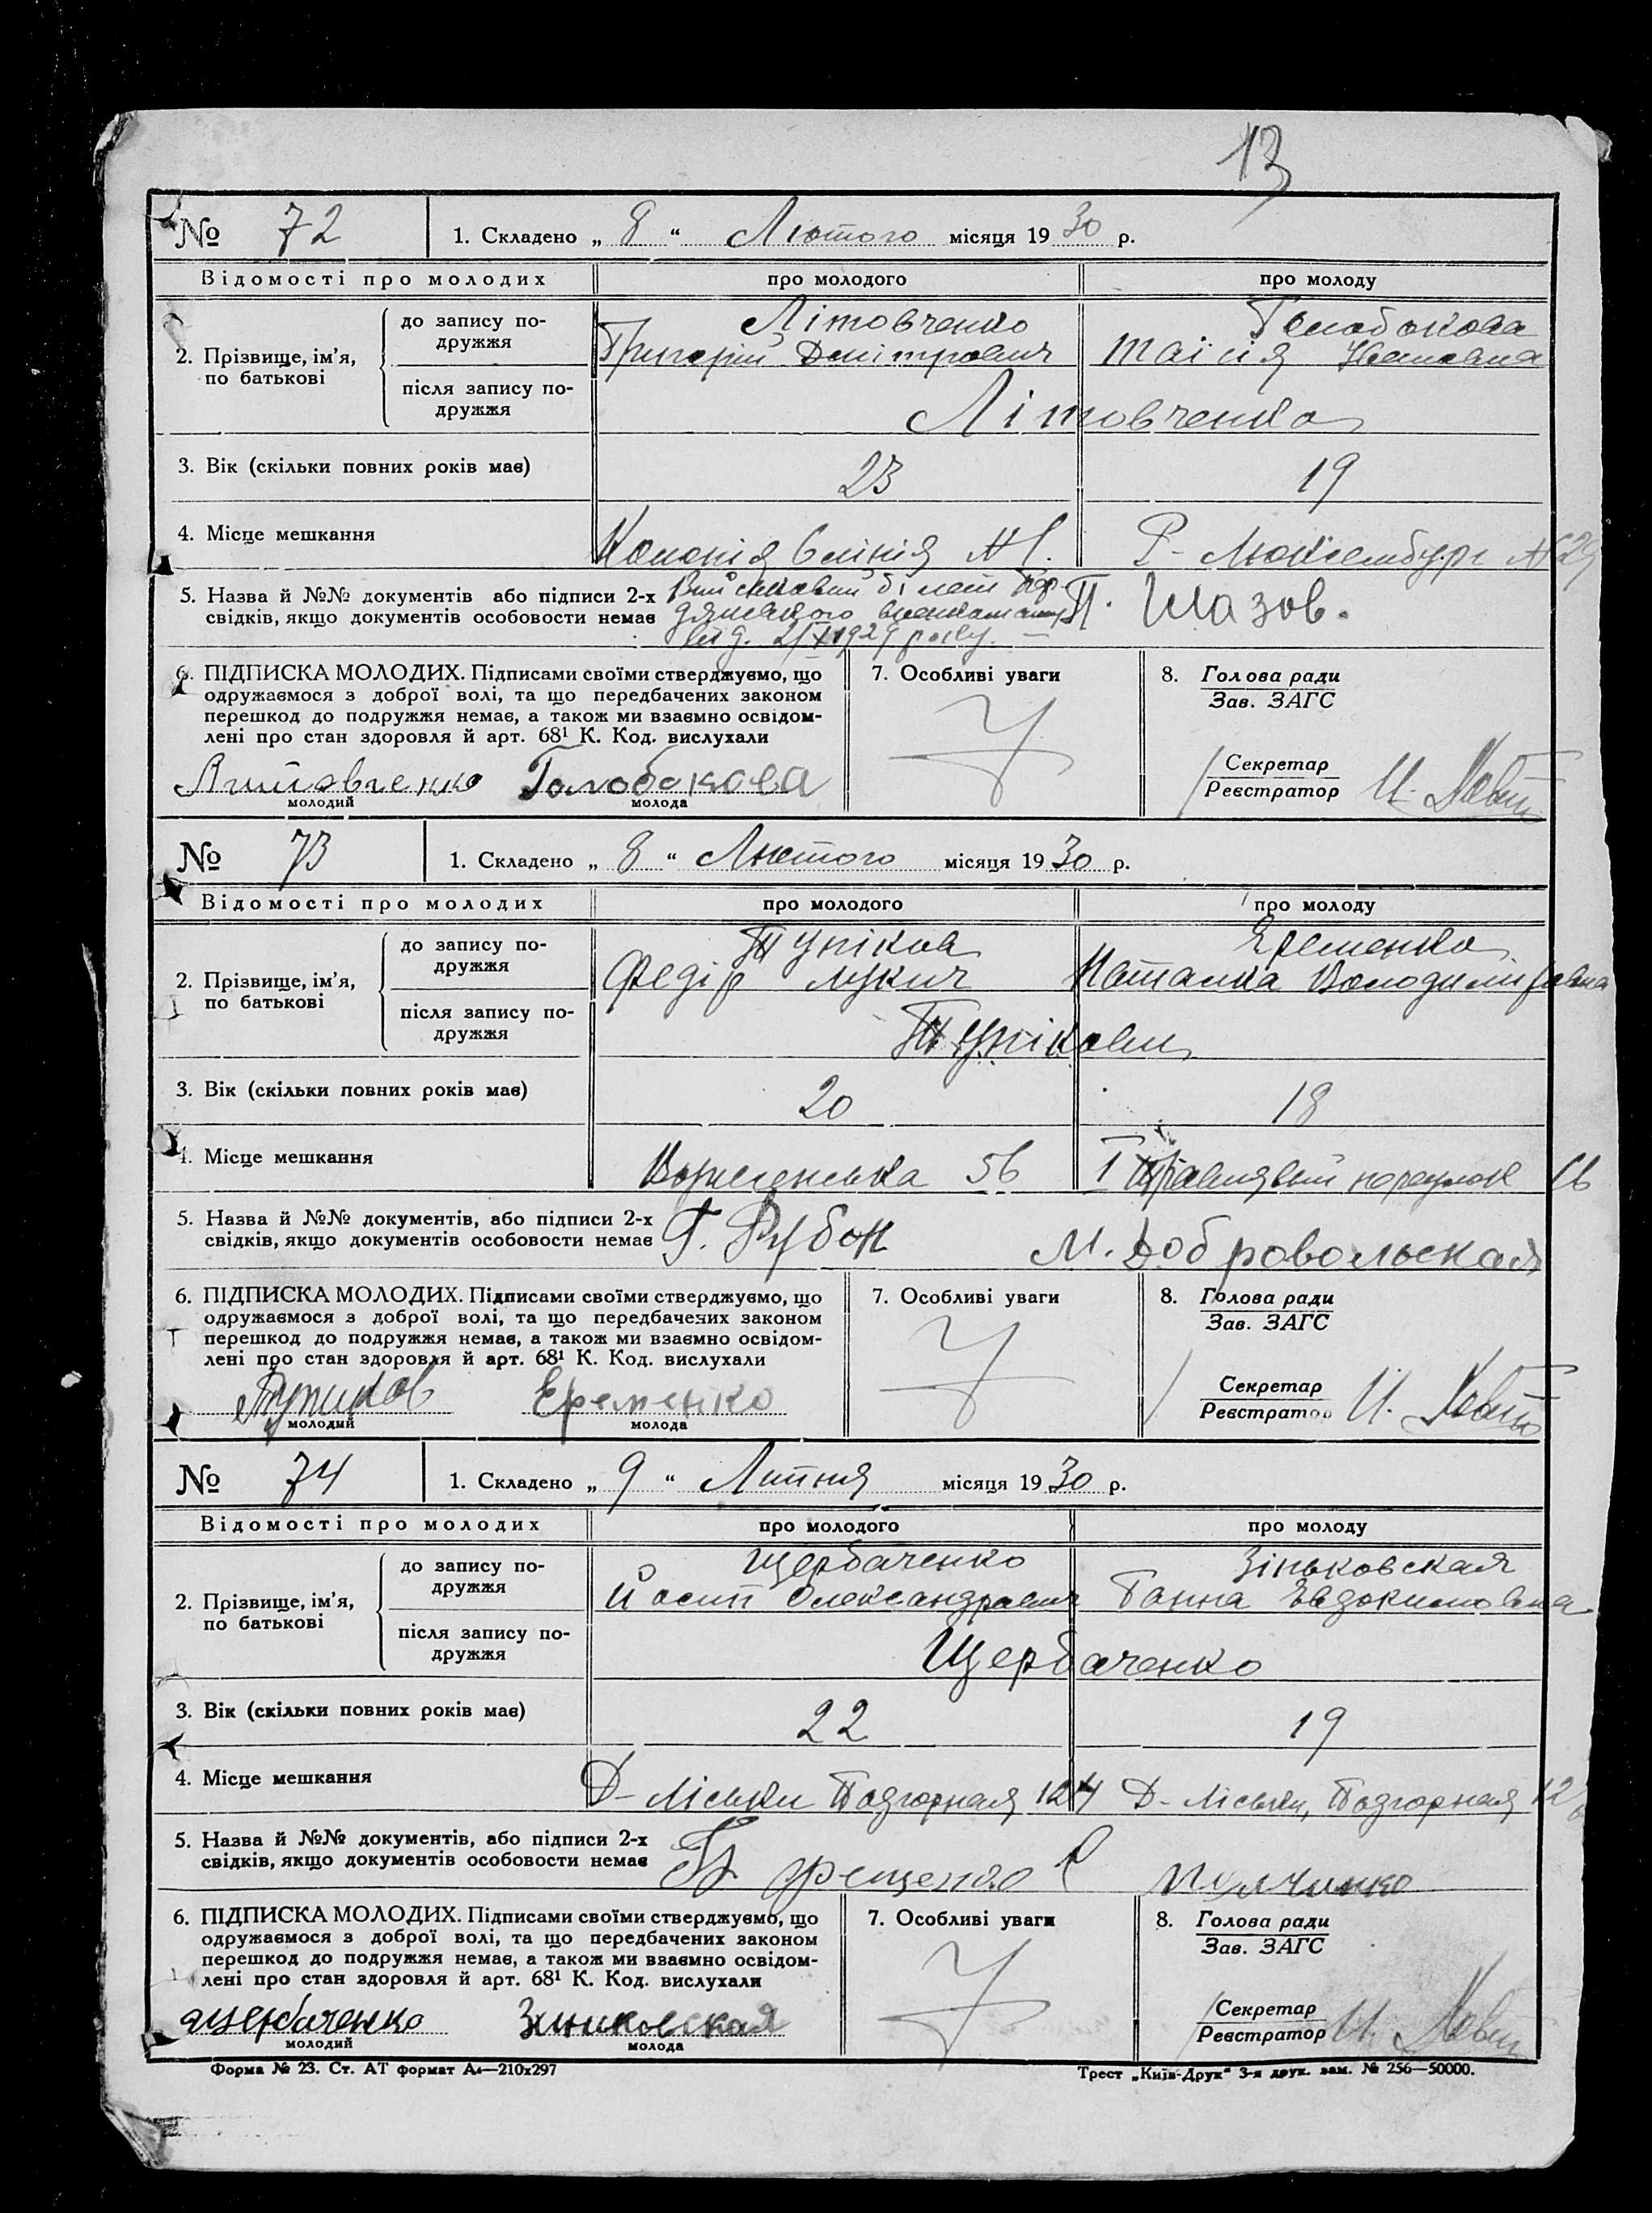 13
№ 72 1. Складено „ 8 “ Лютого місяця 1930 р.
Відомості про молодих про молодого про молоду
2. Прізвище, ім’я, по батькові
до запису подружжя
Літовченко Голобокова
Григорій Дмітрович Таїсія Івановна
після запису подружжя
Літовченко
3. Вік (скільки повних років має) 23 19
4. Місце мешкання Колонія 6 лінія №1. Р-Люксембург № 29
5. Назва й №№ документів або підписи 2-х
свідків, якщо документів особовости немає
Військовий білет
від. 2/X 1929 року. П. Глазов.
6. ПІДПИСКА МОЛОДИХ. Підписами своїми стверджуємо, що
одружаємося з доброї волі, та що передбачених законом
перешкод до подружжя немає, а також ми взаємно освідом-
лені про стан здоровля й арт. 68¹ К. Код. вислухали
Литовченко Голобокова
молодий молода
7. Особливі уваги
8. Голова ради
Зав. ЗАГС
Секретар
Реєстратор
№ 73 1. Складено „ 8 “ Лютого місяця 1930 р.
Відомості про молодих про молодого про молоду
2. Прізвище, ім’я, по батькові
до запису подружжя
Тупіков Єременко
Федір Лукич Наталка Володимировна
після запису подружжя
Тупікови
3. Вік (скільки повних років має) 20 18
4. Місце мешкання 56 I
5. Назва й №№ документів, або підписи 2-х
свідків, якщо документів особовости немає
Г. Рубон М. Добровольская
6. ПІДПИСКА МОЛОДИХ. Підписами своїми стверджуємо, що
одружаємося з доброї волі, та що передбачених законом
перешкод до подружжя немає, а також ми взаємно освідом-
лені про стан здоровля й арт. 68¹ К. Код. вислухали
Тупиков Еременко
молодий молода
7. Особливі уваги
8. Голова ради
Зав. ЗАГС
Секретар
Реєстратор
№ 74 1. Складено „ 9 “ місяця 1930 р.
Відомості про молодих про молодого про молоду
2. Прізвище, ім’я, по батькові
до запису подружжя
Щербаченко Зіньковская
Йосип Олександрович Ганна Євдокимовна
після запису подружжя
Щербаченко
3. Вік (скільки повних років має) 22 19
4. Місце мешкання Д-Ліськи Подгорная 124 Д-Ліськи, Подгорная
5. Назва й №№ документів, або підписи 2-х
свідків, якщо документів особовости немає
6. ПІДПИСКА МОЛОДИХ. Підписами своїми стверджуємо, що
одружаємося з доброї волі, та що передбачених законом
перешкод до подружжя немає, а також ми взаємно освідом-
лені про стан здоровля й арт. 68¹ К. Код. вислухали
Щербаченко Зинковская
молодий молода
7. Особливі уваги
8. Голова ради
Зав. ЗАГС
Секретар
Реєстратор
Форма № 23. Ст. АТ формат А₄—210х297
Трест „Київ-Друк“ 3-я друк. зам. № 256—50000.